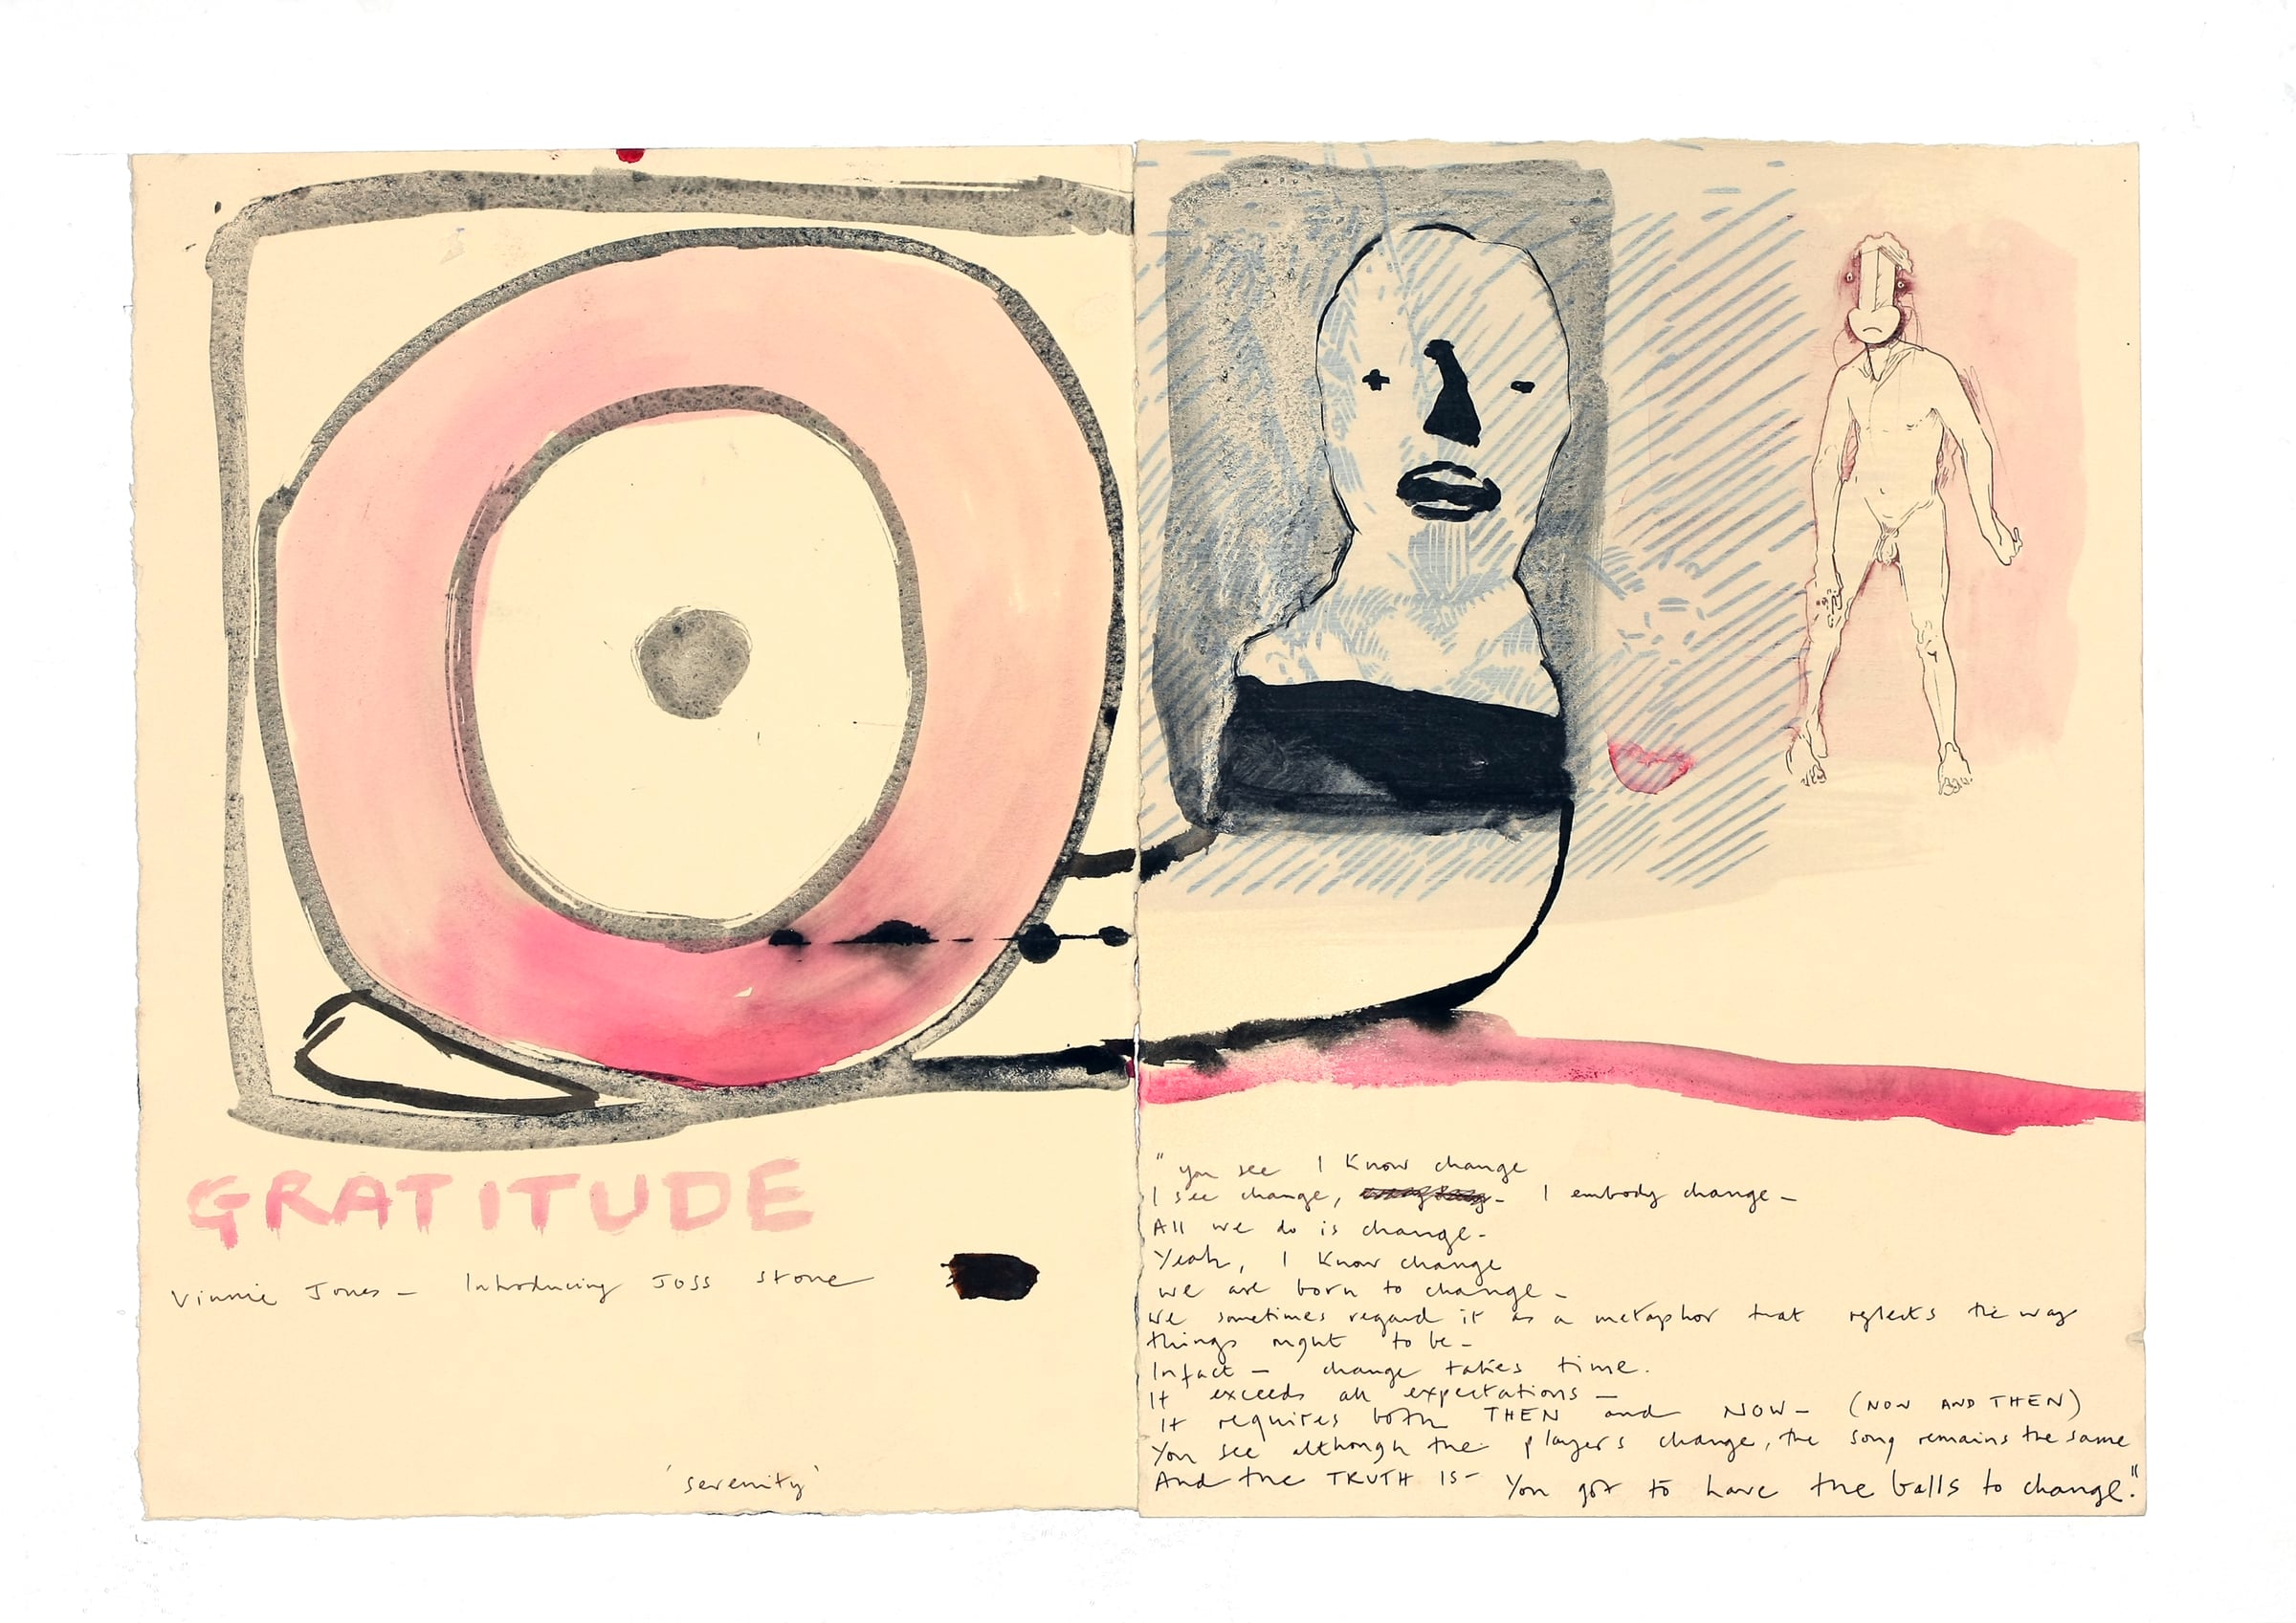 GRATITUDE
Vinnie Jones – Introducing Joss Stone
'serenity'
"you see I know change
I see change, – I embody change –
All we do is change –
Yeah, I know change
we are born to change –
We sometimes regard it as a metaphor that reflects the way
things ought to be –
Infact – change takes time.
It exceeds all expectations –
It requires both THEN and NOW – (NOW AND THEN)
You see although the players change, the song remains the same
And the TRUTH IS – You got to have the balls to change."